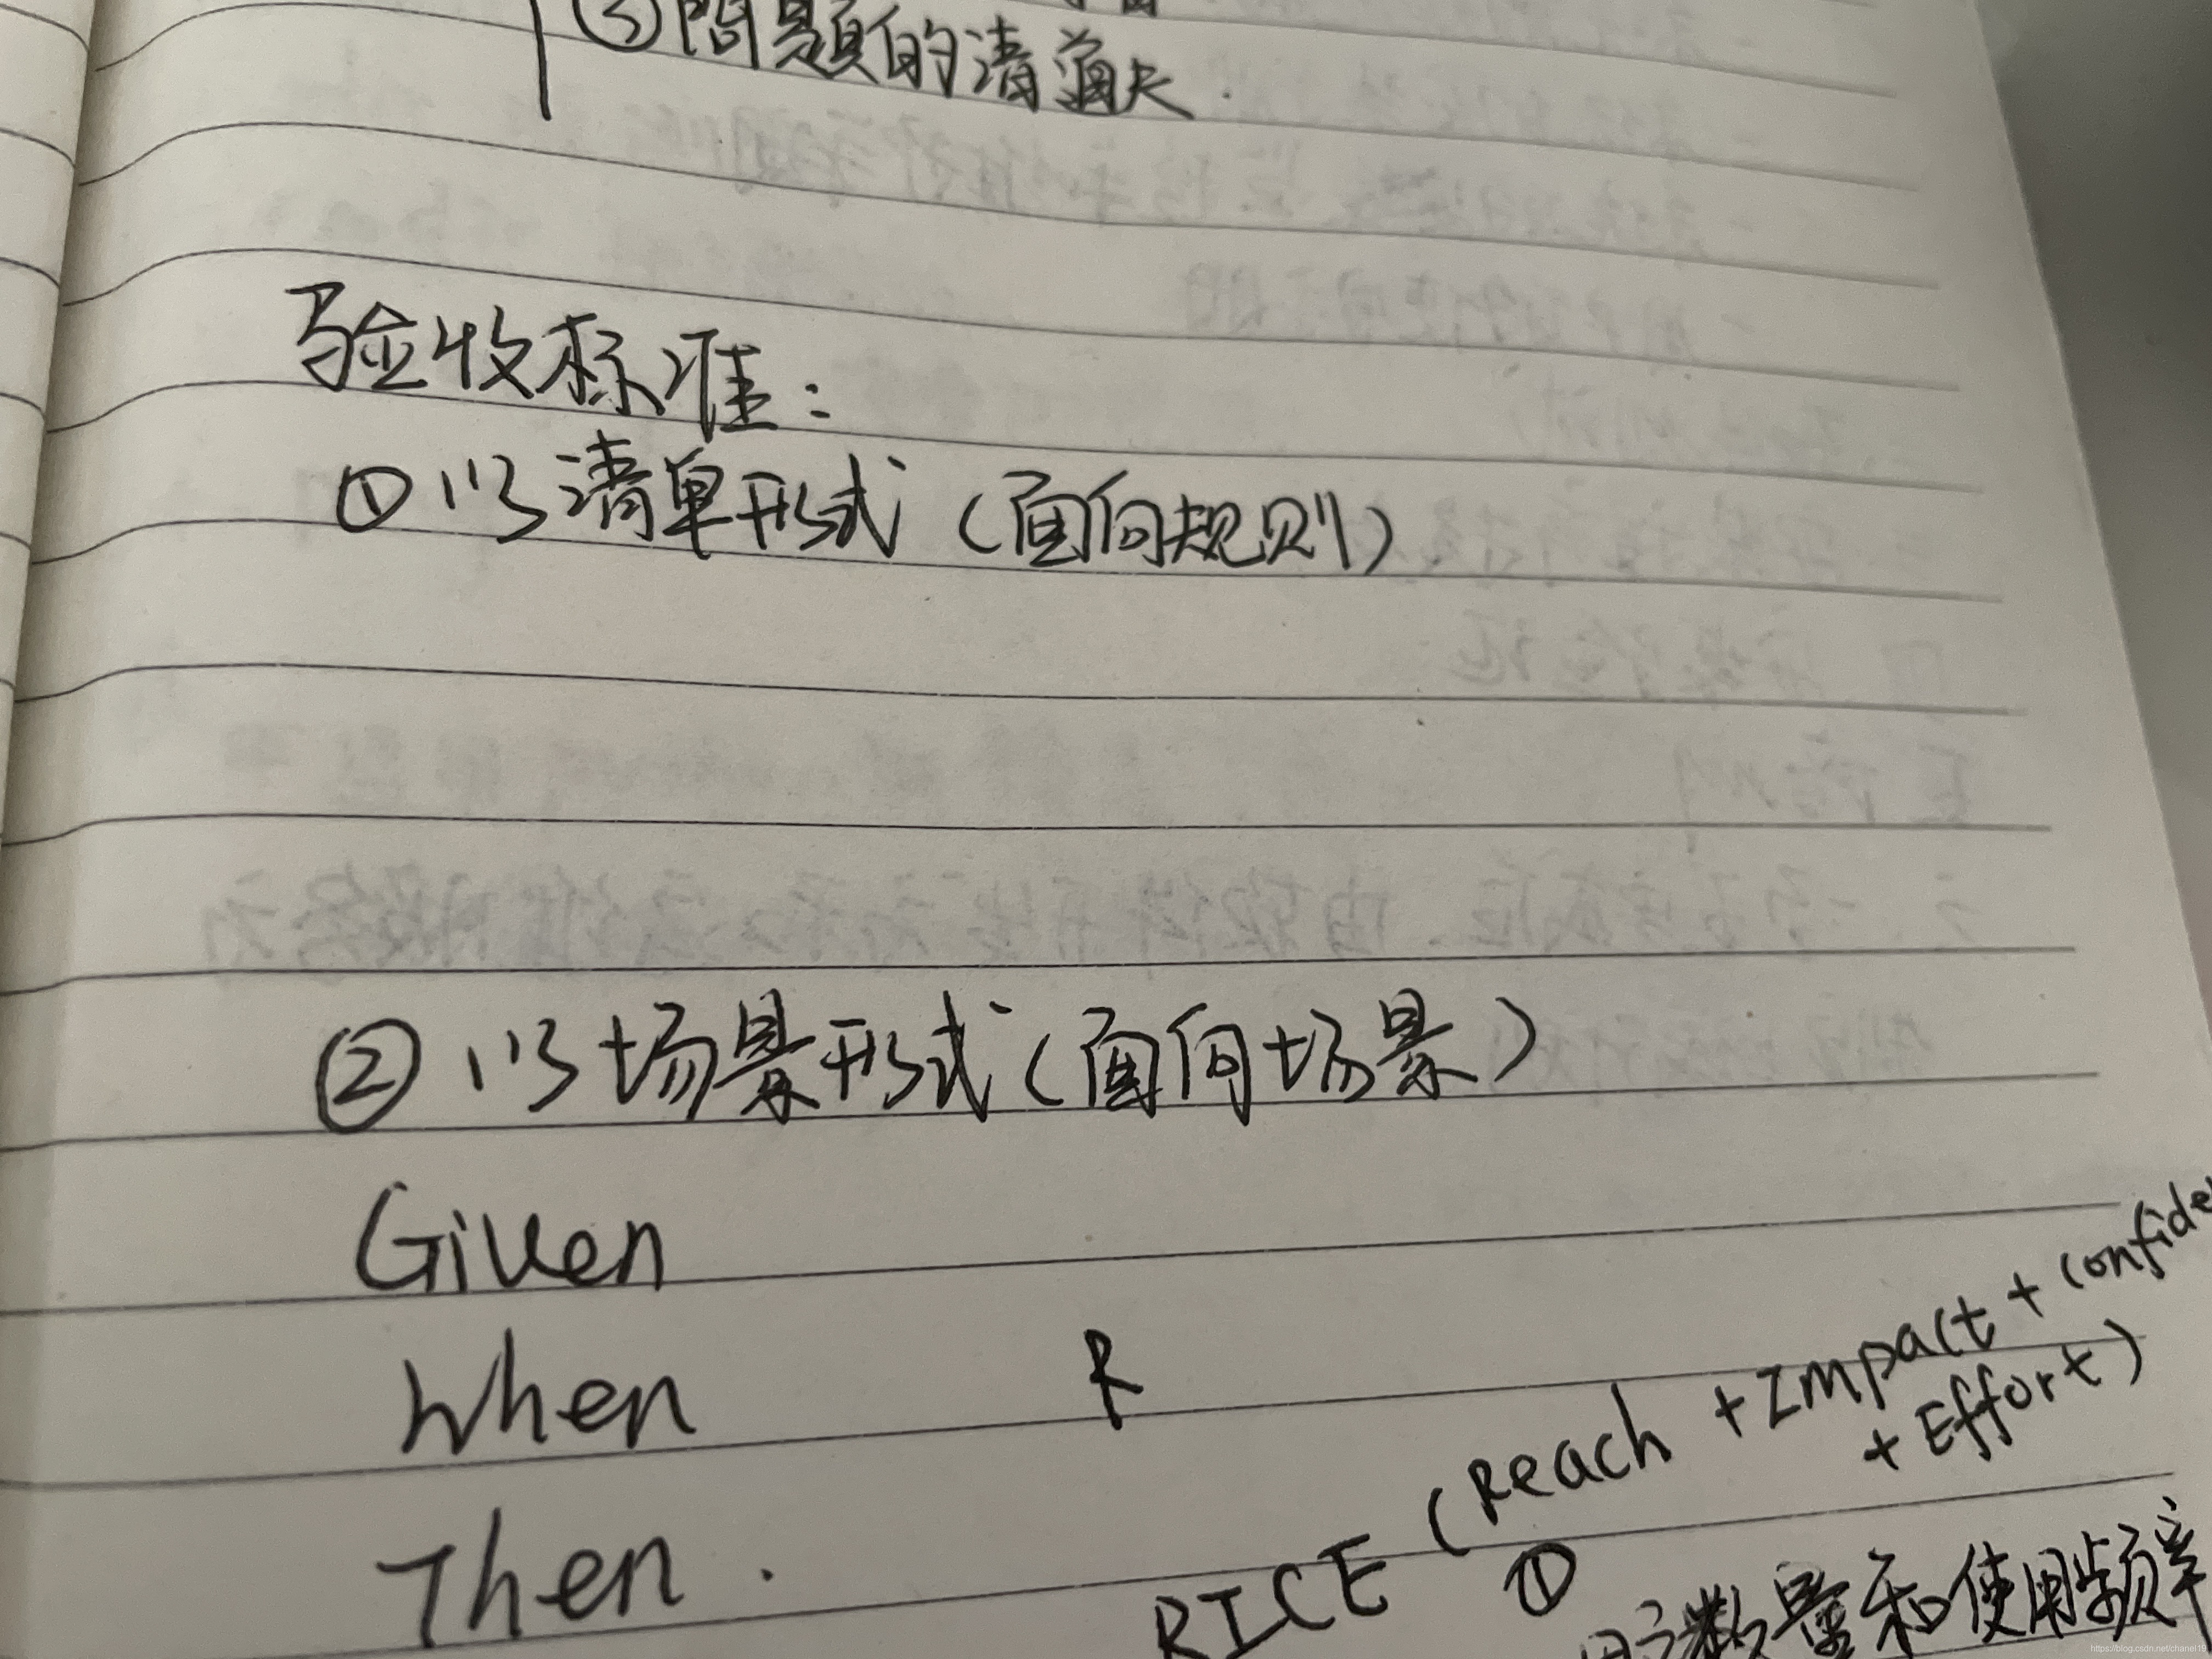 ③問題的清道夫.
验收标准:
①以清单形式(面向规则)
②以场景形式(面向场景)
Given
When
R
Then.
RICE (Reach + Impact + Confide
+ Effort)
①
用户数量和使用频率
https://blog.csdn.net/chanel19